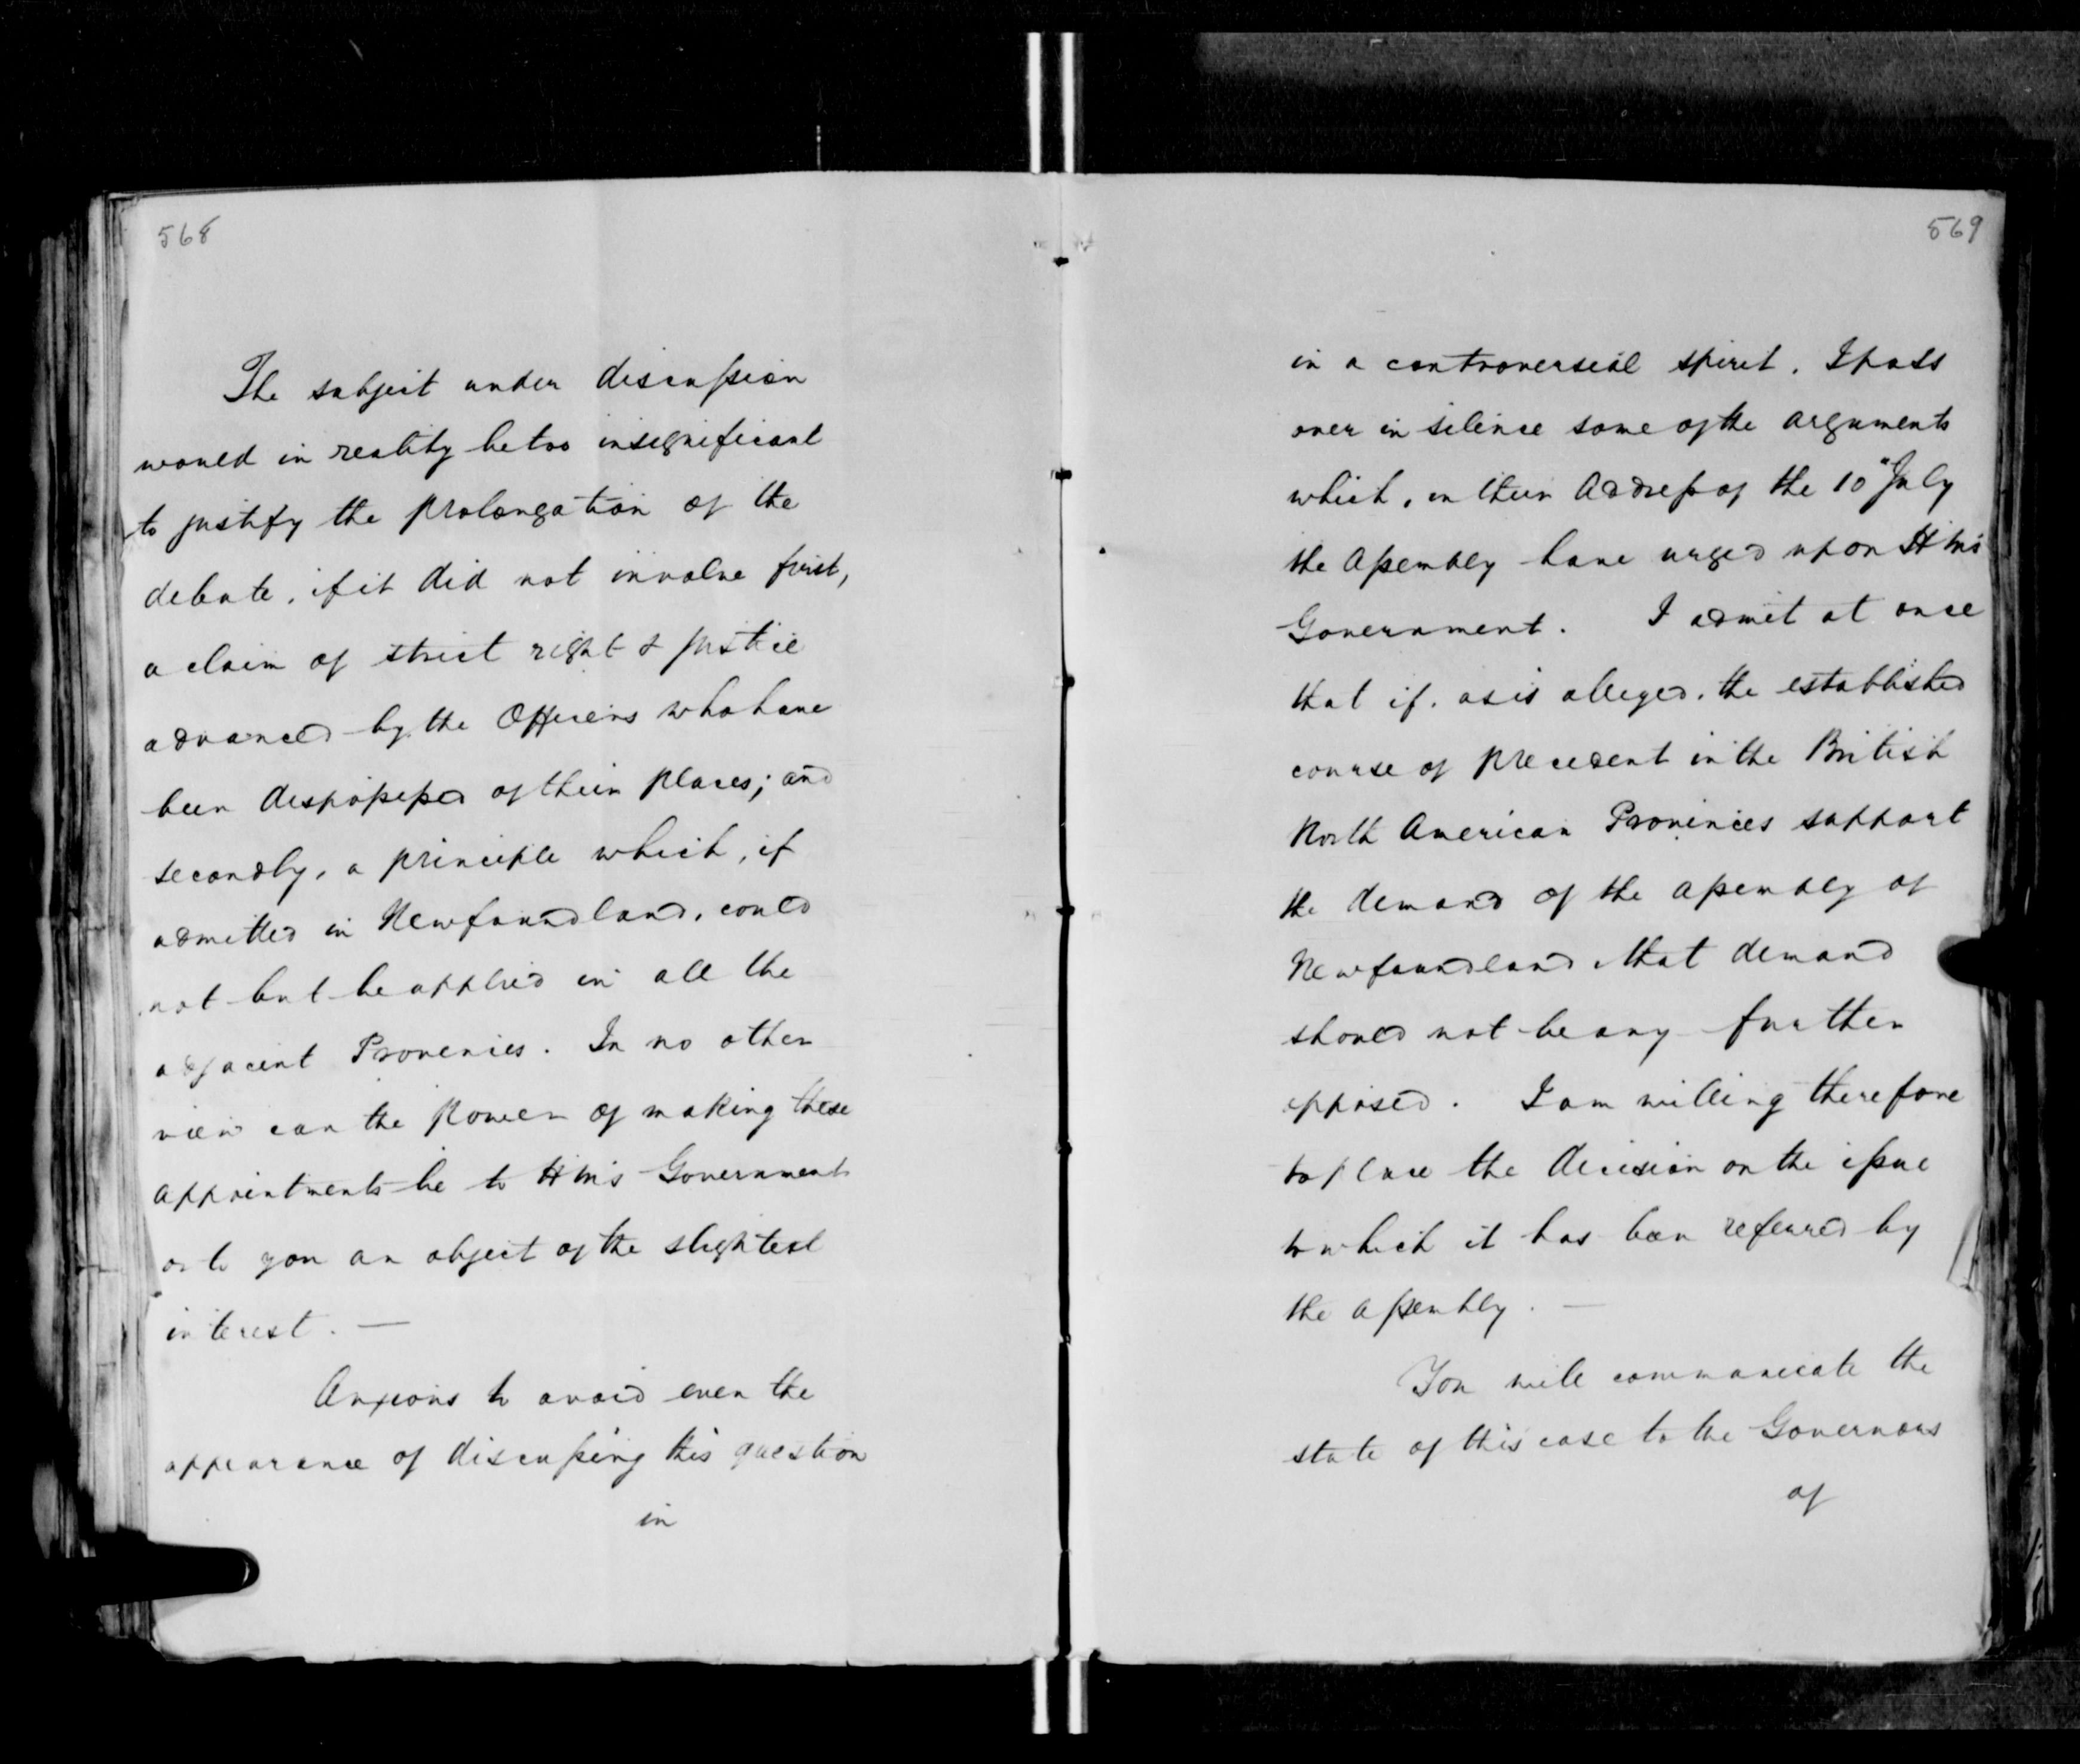 568
The subject under discussion
would in reality be too insignificant
to justify the prolongation of the
debate, if it did not involve first,
a claim of strict right & justice
advanced by the Officers who have
been dispossessed of their places; and
secondly, a principle which, if
admitted in Newfoundland, could
not but be applied in all the
adjacent Provinces. In no other
view can the power of making these
appointments be to HM's Government
or to you an object of the slightest
interest. —
Anxious to avoid even the
appearance of discussing this question
in
569
in a controversial spirit, I pass
over in silence some of the arguments
which, in their Address of the 10" July
the Assembly have urged upon HM's
Government. I admit at once
that if, as is alleged, the established
course of precedent in the British
North American Provinces support
the demand of the Assembly of
Newfoundland, that demand
should not be any further
opposed. I am willing therefore
to place the decision on the issue
to which it has been referred by
the Assembly. —
You will communicate the
state of this case to the Governors
of